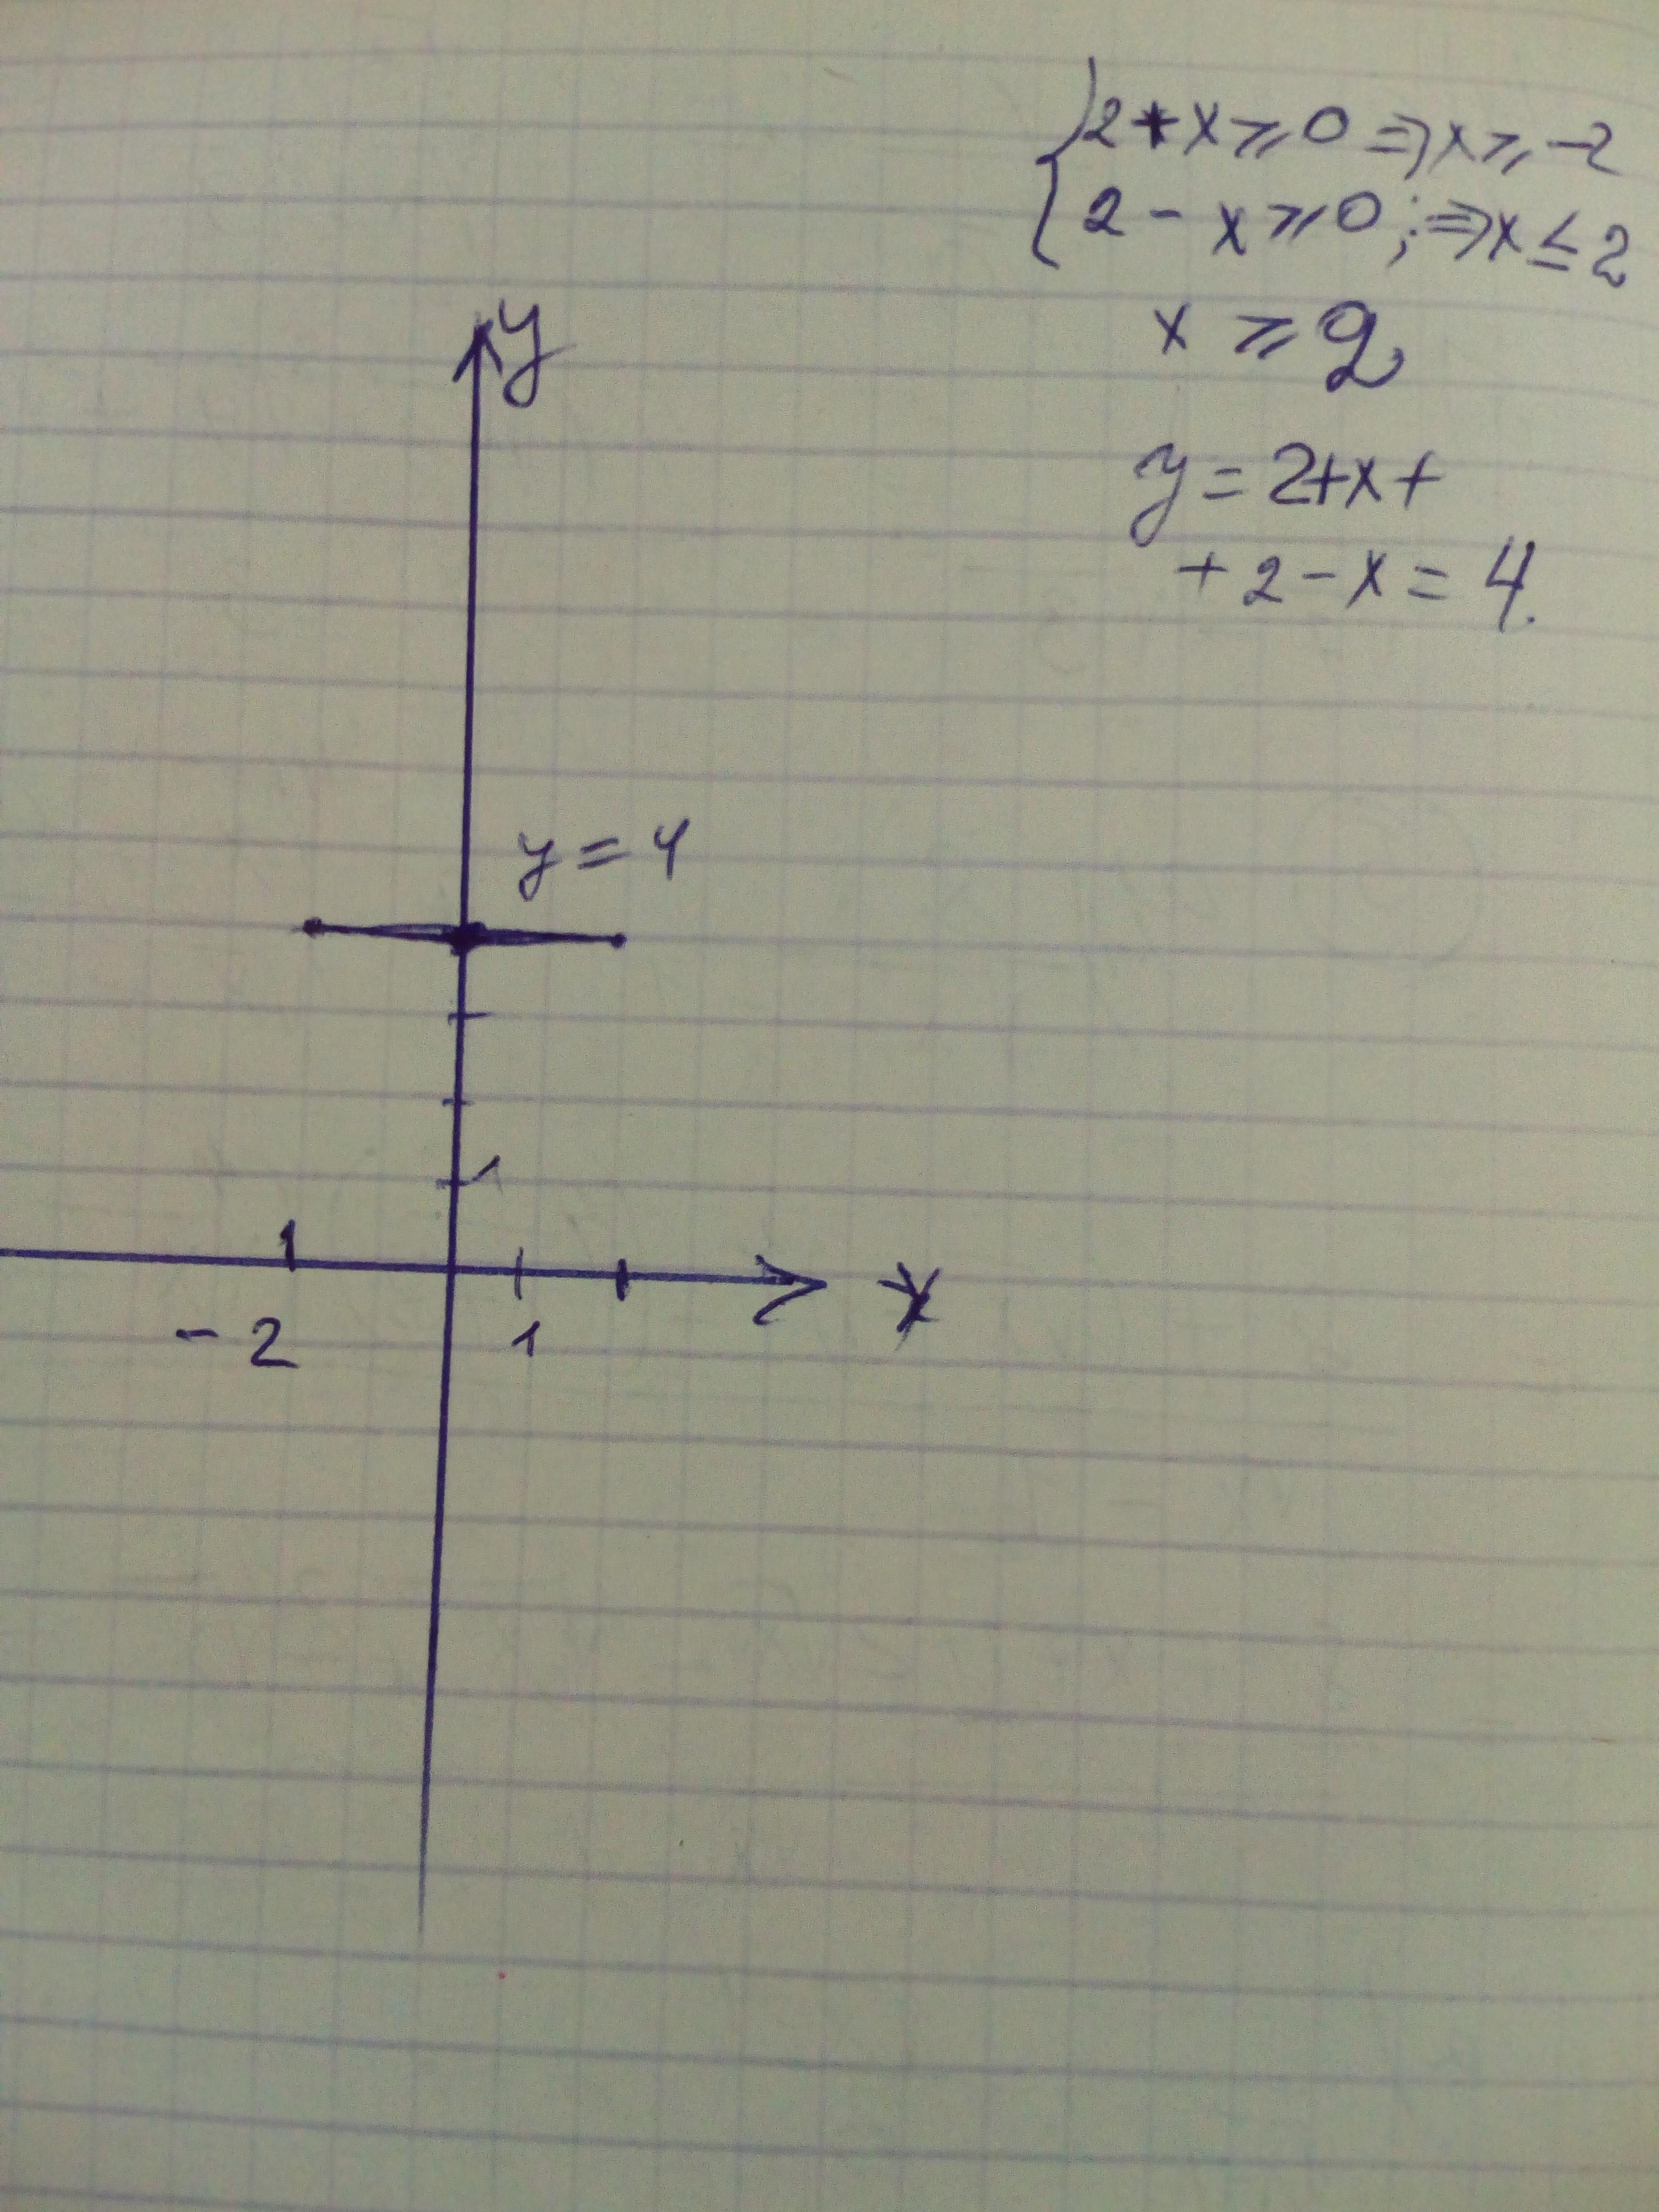 2 + x ⩾ 0 ⇒ x ⩾ -2
2 - x ⩾ 0; ⇒ x ≤ 2
x ⩾ 2
y = 2+x+
+ 2 - x = 4.
y
y = 4
1
x
-2
1